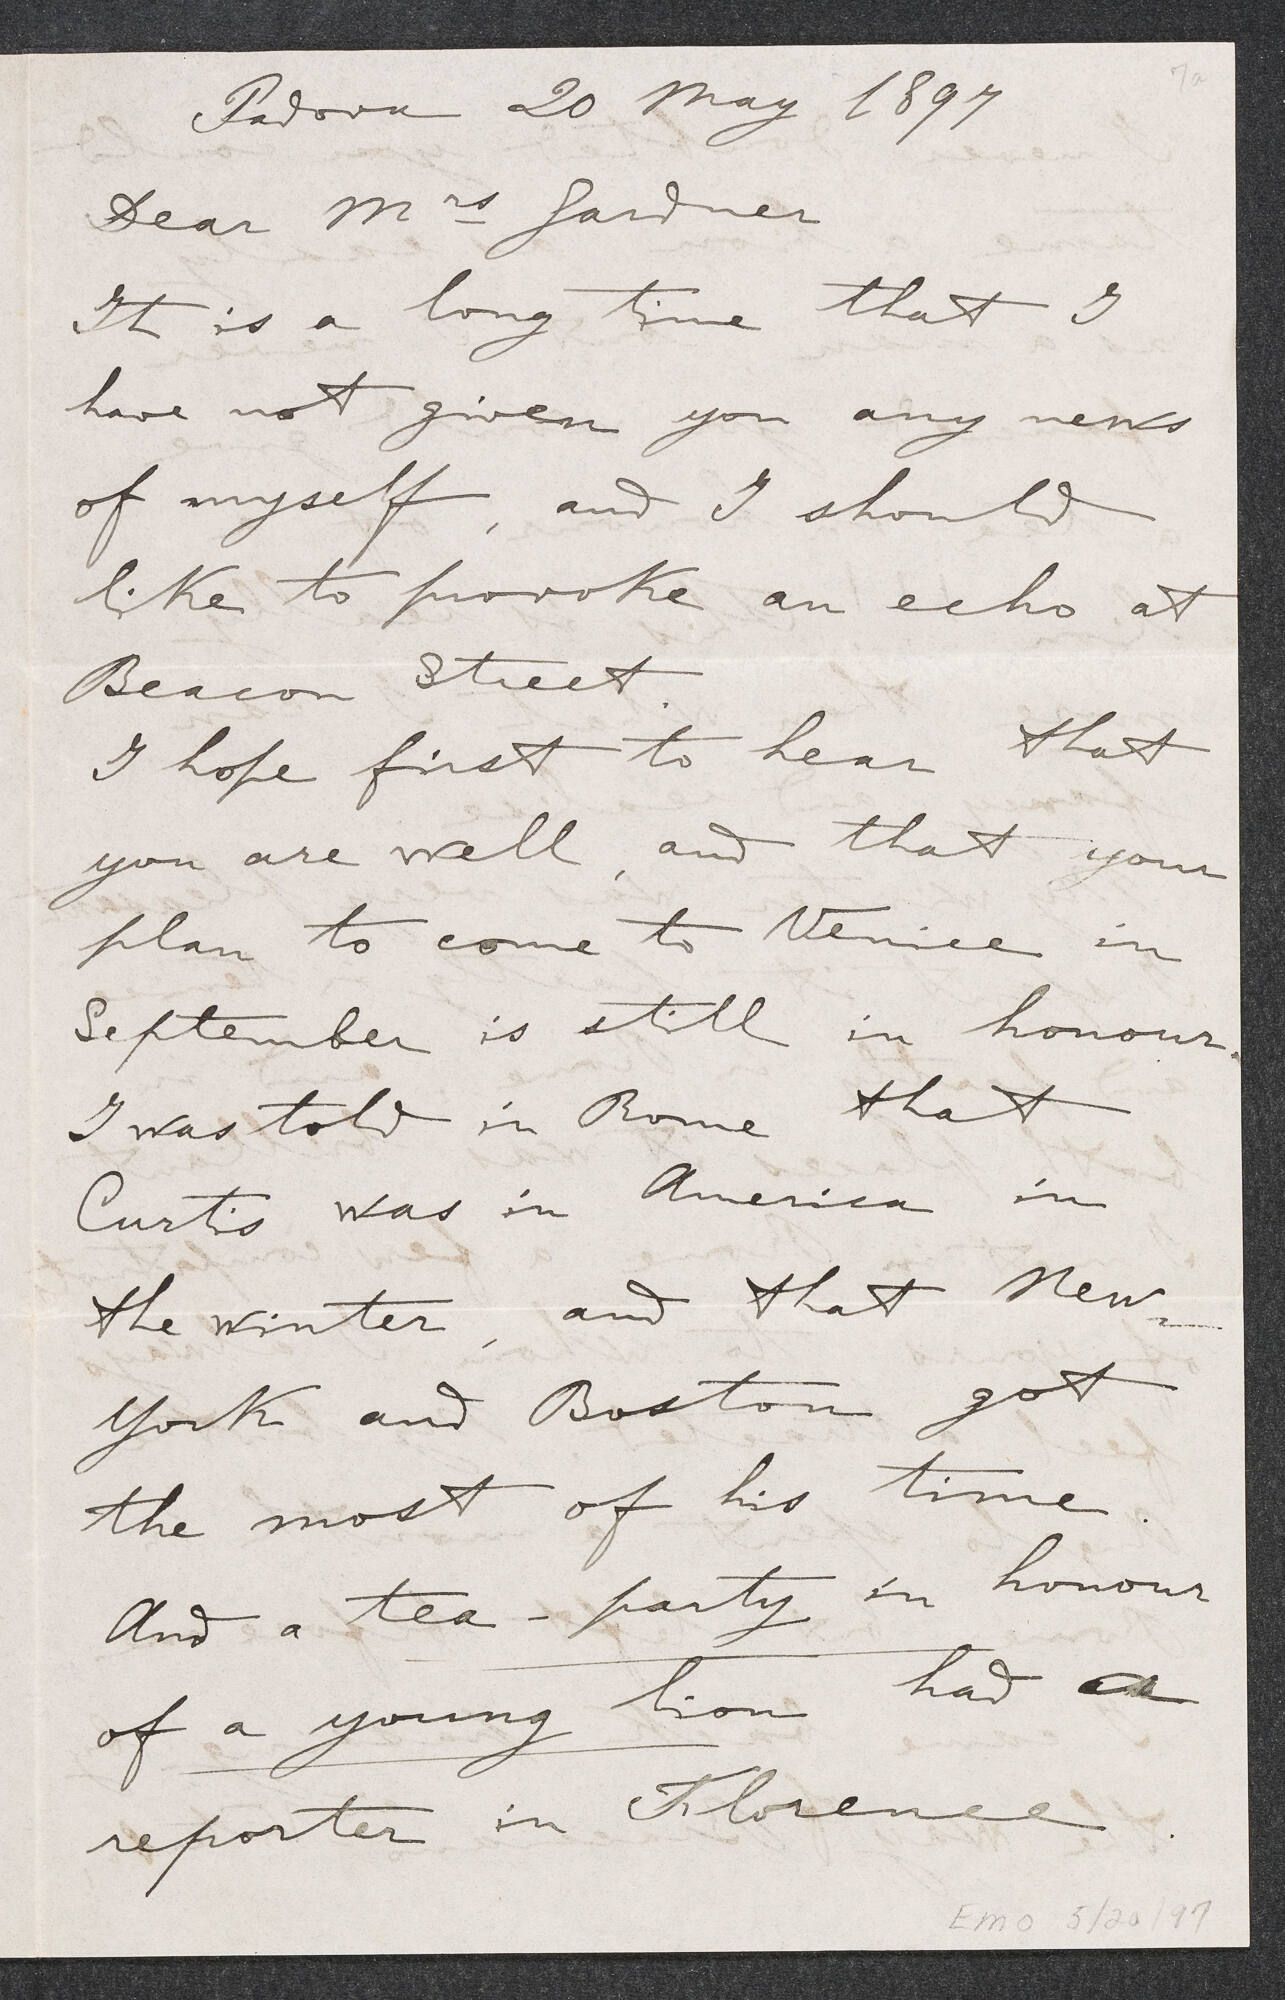 7a
Padova 20 May 1897
Dear Mrs Gardner
It is a long time that I
have not given you any news
of myself, and I should
like to provoke an echo at
Beacon Street.
I hope first to hear that
you are well, and that your
plan to come to Venice in
September is still in honour.
I was told in Rome that
Curtis was in America in
the winter, and that New-
York and Boston got
the most of his time.
And a tea-party in honour
of a young lion had a
reporter in Florence.
Emo 5/20/97